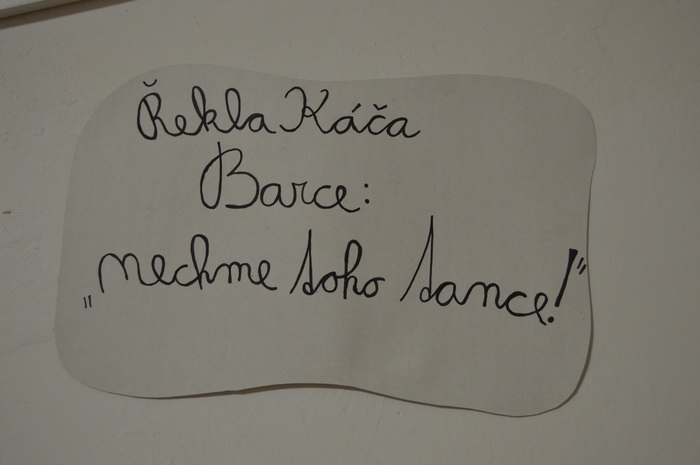 Řekla Káča
Barce:
„nechme toho tance!"